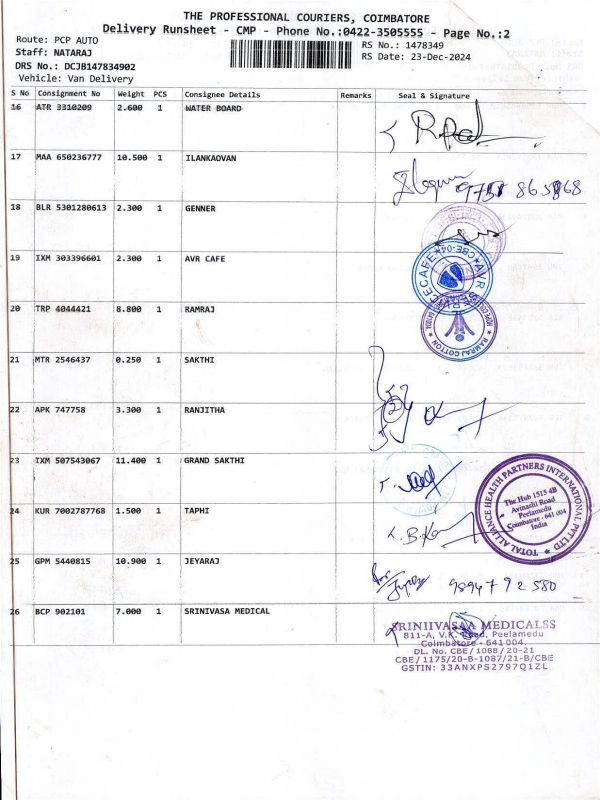 THE PROFESSIONAL COURIERS, COIMBATORE
Delivery Runsheet - CMP - Phone No.:0422-3505555 - Page No.:2
Route: PCP AUTO
RS No.: 1478349
Staff: NATARAJ
RS Date: 23-Dec-2024
DRS No.: DCJB147834902
Vehicle: Van Delivery
S No Consignment No Weight PCS Consignee Details Remarks Seal & Signature
16 ATR 3310209 2.600 1 WATER BOARD
17 MAA 650236777 10.500 1 ILANKAOVAN
18 BLR 5301280613 2.300 1 GENNER
19 IXM 303396601 2.300 1 AVR CAFE
20 TRP 4044421 8.800 1 RAMRAJ
RAMRAJ COTTON
21 MTR 2546437 0.250 1 SAKTHI
22 APK 747758 3.300 1 RANJITHA
23 IXM 507543067 11.400 1 GRAND SAKTHI
TOTAL ALLIANCE HEALTH PARTNERS INTERNATIONAL PVT LTD
The Hub 1515 4B
Avinashi Road
Peelamedu
Coimbatore - 641 004
India
24 KUR 7002787768 1.500 1 TAPHI
25 GPM 5440815 10.900 1 JEYARAJ
9894792580
26 BCP 902101 7.000 1 SRINIVASA MEDICAL
SRINIIVASAA MEDICALSS
811-A, V.K. Road, Peelamedu
Coimbatore - 641 004.
DL. No. CBE/1088/20-21
CBE/1175/20-B-1087/21-B/CBE
GSTIN: 33ANXPS2797Q1ZL